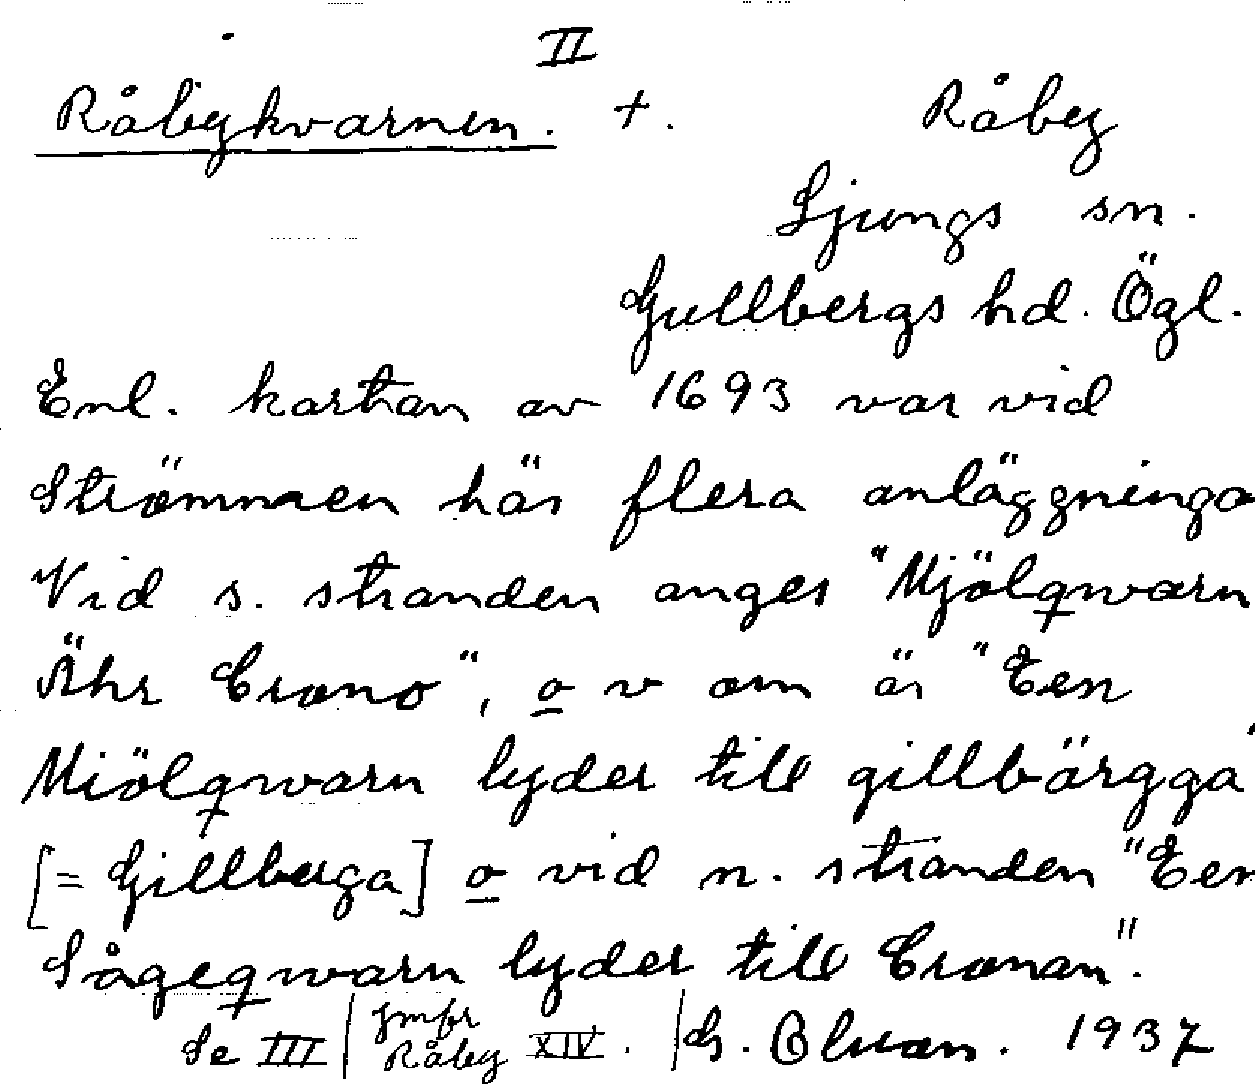 II
Råbykvarnen. +. Råby
Ljungs sn.
Gullbergs hd. Ögl.
Enl. kartan av 1693 var vid
Strömmen här flera anläggninga
Vid s. stranden anges "Mjölqwarn
Ähr Crono", o v om är "Een
Miölqwarn lyder till gillbärgga"
[= Gillberga] o vid n. stranden "Een
Sågeqwarn lyder till Cronan".
Se III | Jmfr Råby XIV. | G. 1937